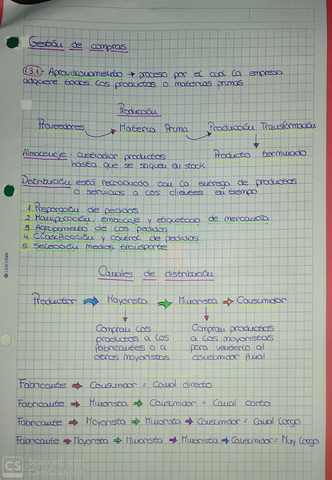 Gestión de compras
1.3.1 Aprovisionamiento → proceso por el cual la empresa
adquiere todos los productos o materias primas
Producción
Proveedores → Materia Prima → Producción Transformación
Producto terminado
Almacenaje: custodiar productos
hasta que se saquen en stock
Distribución está relacionado con la entrega de productos
o servicios a los clientes en tiempo
1. Preparación de pedidos
2. Manipulación, embalaje y etiquetado de mercancía
3. Agrupamiento de los pedidos
4. Clasificación y control de pedidos
5. Selección medios transporte
Canales de distribución
Productor → Mayorista → Minorista → Consumidor
Compran los
productos a los
fabricantes o a
otros mayoristas
Compran productos
a los mayoristas
para venderlo al
consumidor final
Fabricante → Consumidor = Canal directo
Fabricante → Minorista → Consumidor = Canal corto
Fabricante → Mayorista → Minorista → Consumidor = Canal largo
Fabricante → Mayorista → Minorista → Minorista → Consumidor = Muy largo
CS
Scanned with
CamScanner